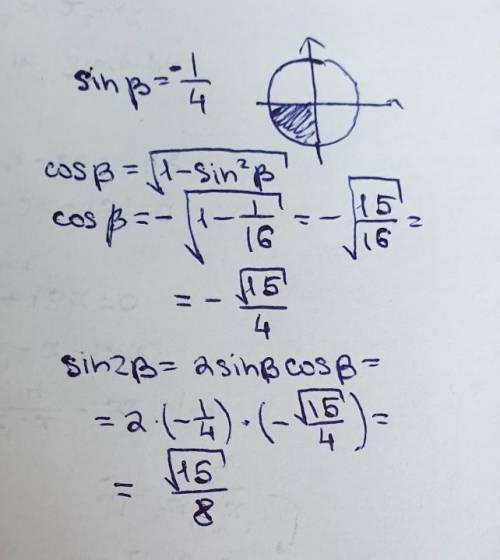 sin β = -1/4
cos β = √(1 - sin²β)
cos β = - √(1 - 1/16) = - √(15/16) =
= - √15/4
sin2β = 2sinβcosβ =
= 2·(-1/4)·(-√15/4) =
= √15/8